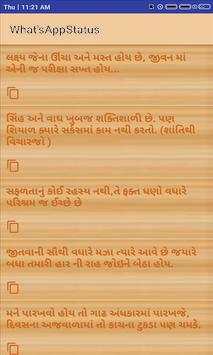 Thu | 11:21 AM
What'sAppStatus
લક્ષ્ય જેના ઊંચા અને મસ્ત હોય છે, જીવન માં
એની જ પરીક્ષા સખ્ત હોય...
સિંહ અને વાઘ ખુબજ શક્તિશાળી છે. પણ
શિયાળ ક્યારે સર્કસમાં કામ નથી કરતો. (શાંતિથી
વિચારજો )
સફળતાનું કોઈ રહસ્ય નથી,તે ફક્ત ઘણો વધારે
પરિશ્રમ જ ઈચ્છે છે
જીતવાની સૌથી વધારે મઝા ત્યારે આવે છે જયારે
બધા તમારી હાર ની રાહ જોઇને બેઠા હોય.
મને પારખવો હોય તો ગાઢ અંધકારમાં પારખજે,
દિવસના અજવાળામાં તો કાચના ટુકડા પણ ચમકે.